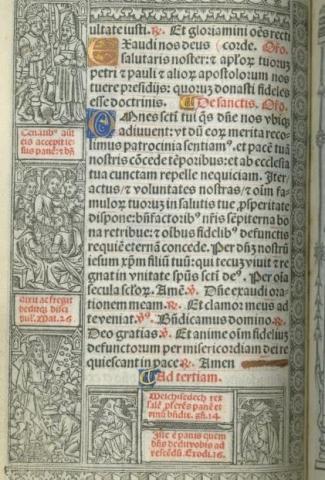 ultate iusti. ℞. Et gloriamini oēs recti
Exaudi nos deus (corde. Orō.
salutaris noster: ⁊ aplor̄ tuorū
petri ⁊ pauli ⁊ alior̄ apostolorum nos
tuere presidijs: quorū donasti fideles
esse doctrinis. De sanctis. Orō.
Omnes scti̅ tui q̄s dn̄e nos vbiq̄
adiuuent: vt dū eor̄ merita reco
limus patrocinia sentiam⁹. et pacē tuā
nostris cōcede tēporibus: et ab ecclesia
tua cunctam repelle nequiciam. Iter/
actus/ ⁊ voluntates nostras/ ⁊ oīm fa
mulor̄ tuor̄ū in salutis tue ꝓsperitate
dispone: bn̄factorib⁹ nr̄is sēpiterna bo
na retribue: ⁊ oībus fidelib⁹ defunctis
requiē eternā concede. Per dn̄m nostrū
iesum xp̄m filiū tuū: qui tecū viuit ⁊ re
gnat in vnitate spūs scti̅ de⁹. Per oīa
secula sclor̄. Amē. ℣. Dn̄e exaudi ora
tionem meam. ℞. Et clamor meus ad
te veniat. ℣⁹. Bn̄dicamus domino. ℞.
Deo gratias. ℣. Et anime oīm fideliū
defunctorum per misericordiam dei re
quiescant in pace. ℞. Amen
Ad tertiam.
Cenātib⁹ aūt
eis accepit ie
sus panē: ⁊ bn̄
dixit ac fregit
deditq; disci
pul. Mat. 26
Melchisedech rex
salē ꝓferēs panē et
vinū bn̄dix. gn̄. 14
Iste ē panis quem
dn̄s dedit vobis ad
vescēdū. Exodi. 16.